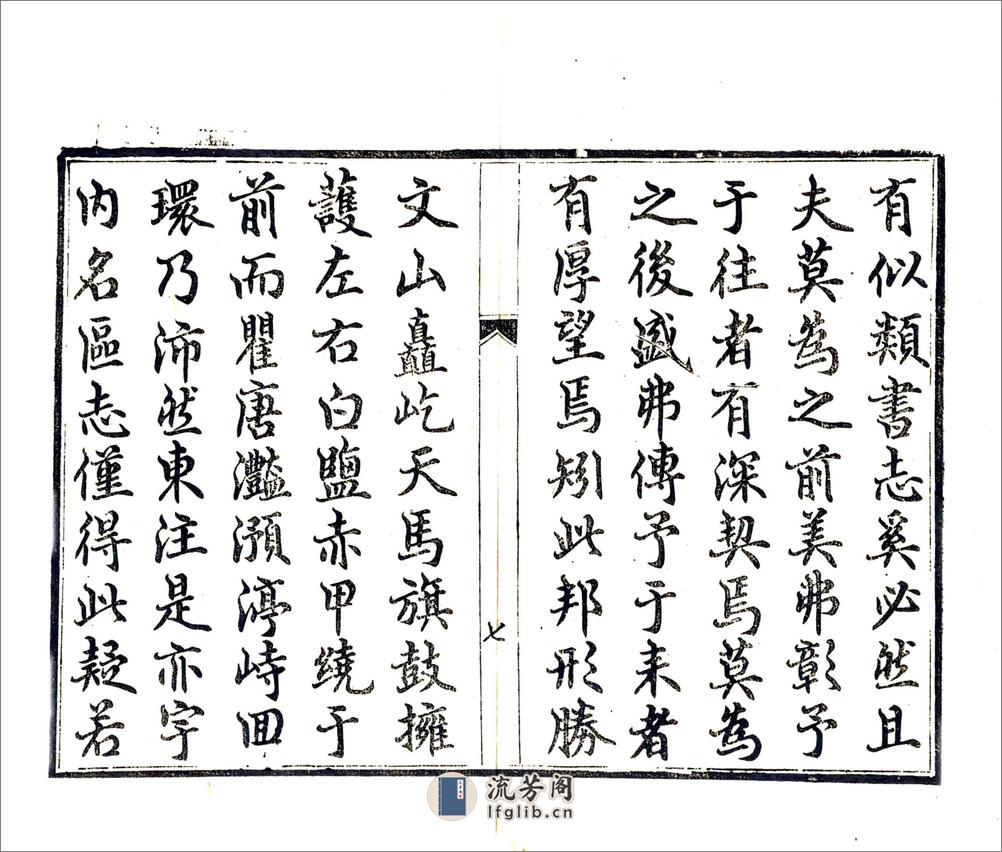 有似類書志奚必然且
夫莫為之前美弗彰予
于往者有深契焉莫為
之後盛弗傳予于来者
有厚望焉矧此邦形勝
七
文山矗屹天馬旗鼓擁
護左右白鹽赤甲繞于
前而瞿唐灩澦渟峙囬
環乃沛然東注是亦宇
内名區志僅得此疑若
流芳阁
lfglib.cn